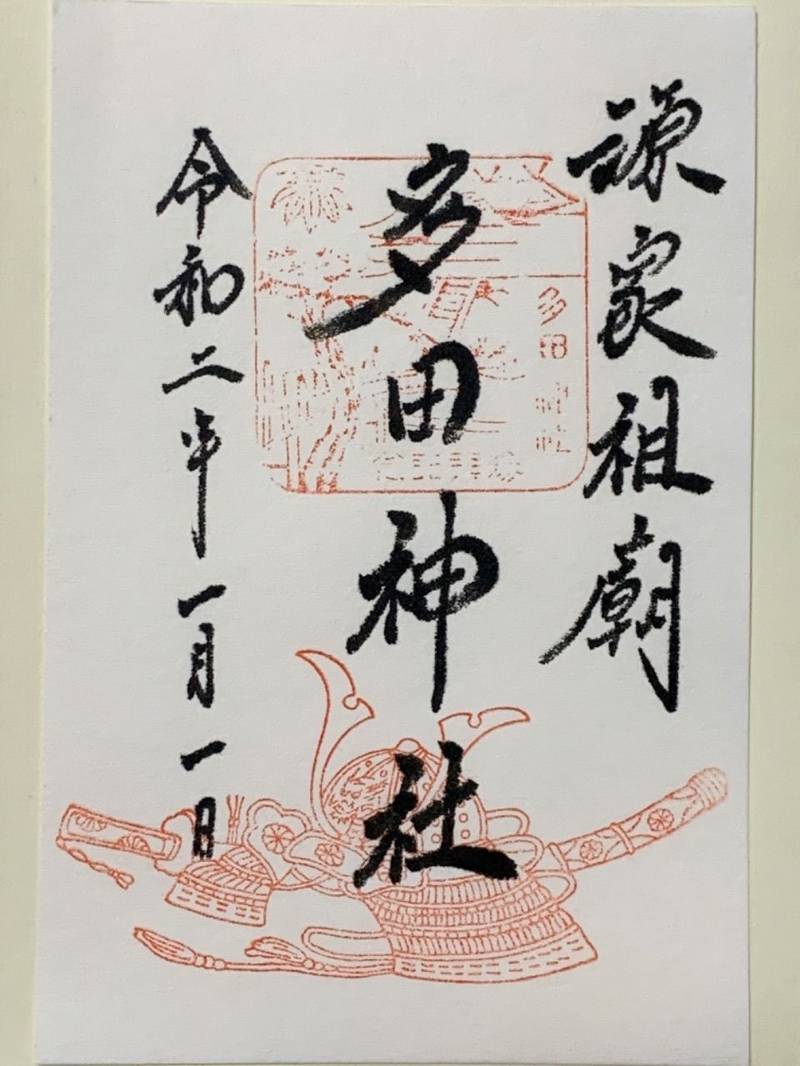 源家祖廟
多田神社
令和二年一月一日
多田神社